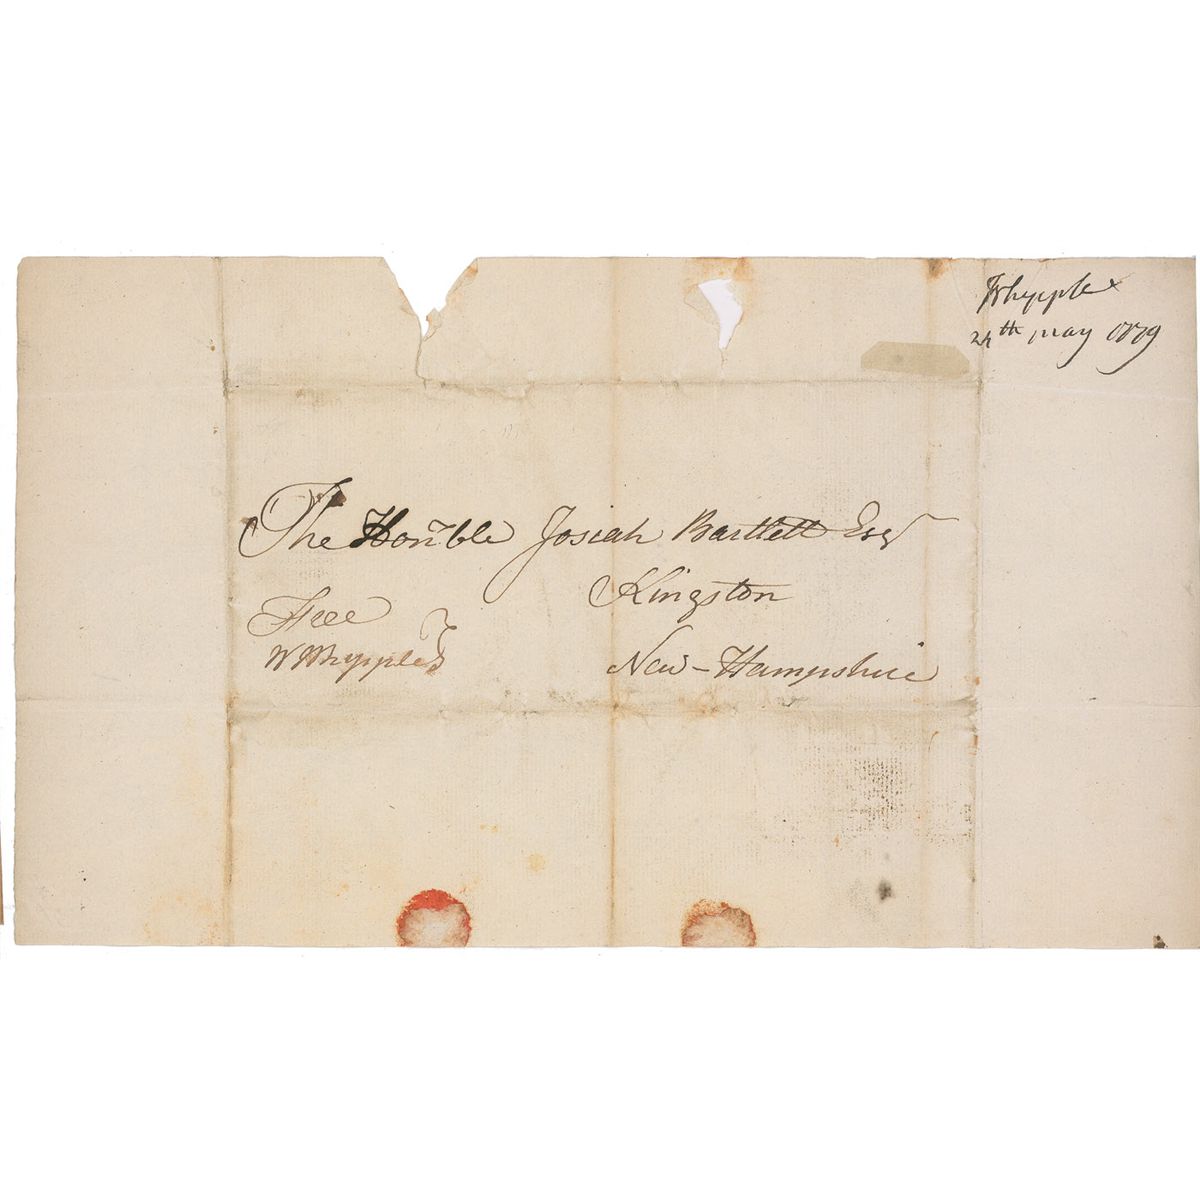 Whipple
24th may 1779
The Hon'ble Josiah Bartlett Esqr
Kingston
New-Hampshire
Free
Wm Whipple